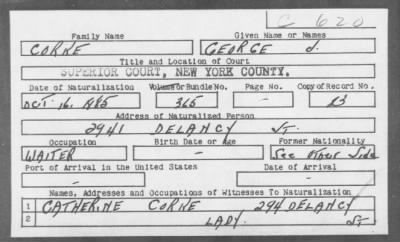 C 620
Family Name Given Name or Names
CORNE GEORGE J.
Title and Location of Court
SUPERIOR COURT, NEW YORK COUNTY.
Date of Naturalization Volume or Bundle No. Page No. Copy of Record No.
OCT. 16, 1885 365 - 23
Address of Naturalized Person
2941 DELANCY ST.
Occupation Birth Date or Age Former Nationality
WAITER - See Other Side
Port of Arrival in the United States Date of Arrival
- -
Names, Addresses and Occupations of Witnesses To Naturalization
1 CATHERINE CORNE 294 DELANCY
2 LADY. ST.